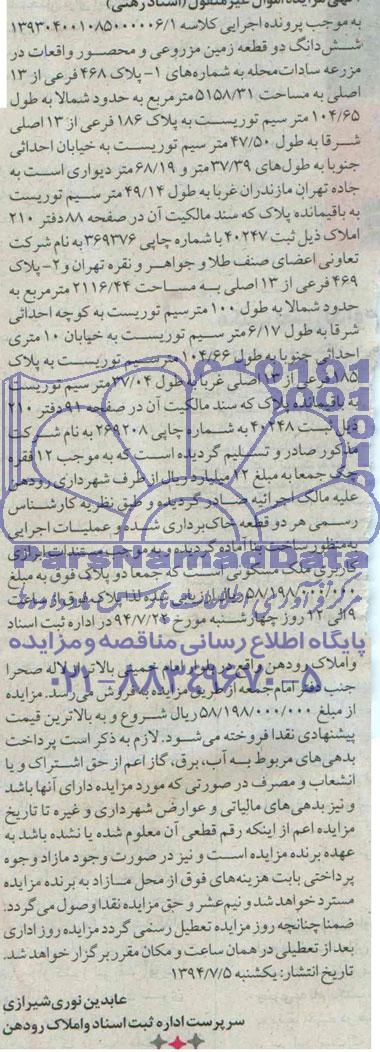 آگهی مزایده اموال غیرمنقول (اسناد رهنی)
به موجب پرونده اجرایی کلاسه ۱۳۹۳۰۴۰۰۱۰۸۵۰۰۰۰۰۶/۱
شش‌دانگ دو قطعه زمین مزروعی و محصور واقعات در
مزرعه سادات‌محله به شماره‌های ۱- پلاک ۴۶۸ فرعی از ۱۳
اصلی به مساحت ۵۱۵۸/۳۱ مترمربع به حدود شمالا به طول
۱۰۴/۶۵ متر سیم توریست به پلاک ۱۸۶ فرعی از ۱۳ اصلی
شرقا به طول ۴۷/۵۰ متر سیم توریست به خیابان احداثی
جنوبا به طول‌های ۳۷/۳۹ متر و ۶۸/۱۹ متر دیواری است به
جاده تهران مازندران غربا به طول ۴۹/۱۴ متر سیم توریست
به باقیمانده پلاک که سند مالکیت آن در صفحه ۸۸ دفتر ۲۱۰
املاک ذیل ثبت ۴۰۲۴۷ با شماره چاپی ۳۶۹۳۷۶ به نام شرکت
تعاونی اعضای صنف طلا و جواهر و نقره تهران و ۲- پلاک
۴۶۹ فرعی از ۱۳ اصلی به مساحت ۲۱۱۶/۴۴ مترمربع به
حدود شمالا به طول ۱۰۰ متر سیم توریست به کوچه احداثی
شرقا به طول ۶/۱۷ متر سیم توریست به خیابان ۱۰ متری
احداثی جنوبا به طول ۱۰۴/۶۶ متر سیم توریست به پلاک
۱۸۵ فرعی از ۱۳ اصلی غربا به طول ۳۷/۰۴ متر سیم توریست
به باقیمانده پلاک که سند مالکیت آن در صفحه ۹۱ دفتر ۲۱۰
ذیل ثبت ۴۰۲۴۸ به شماره چاپی ۲۶۹۲۰۸ به نام شرکت
مذکور صادر و تسلیم گردیده است که به موجب ۱۲ فقره
چک جمعا به مبلغ ۱۲ میلیارد ریال از طرف شهرداری رودهن
علیه مالک اجرائیه صادر گردیده و طبق نظریه کارشناس
رسمی هر دو قطعه خاک‌برداری شده و عملیات اجرایی
به منظور ساخت بنا آماده گردیده و به موجب مستندات ابرازی
کاربری ملک مسکونی است که جمعا دو پلاک فوق به مبلغ
۵۸/۱۹۸/۰۰۰/۰۰۰ ریال ارزیابی شده لذا پلاک فوق از ساعت
۹ الی ۱۲ روز چهارشنبه مورخ ۹۴/۷/۲۲ در اداره ثبت اسناد
و املاک رودهن واقع در بلوار امام خمینی بالاتر از لاله صحرا
جنب دفتر امام جمعه از طریق مزایده به فروش می‌رسد. مزایده
از مبلغ ۵۸/۱۹۸/۰۰۰/۰۰۰ ریال شروع و به بالاترین قیمت
پیشنهادی نقدا فروخته می‌شود. لازم به ذکر است پرداخت
بدهی‌های مربوط به آب، برق، گاز اعم از حق اشتراک و یا
انشعاب و مصرف در صورتی که مورد مزایده دارای آنها باشد
و نیز بدهی‌های مالیاتی و عوارض شهرداری و غیره تا تاریخ
مزایده اعم از اینکه رقم قطعی آن معلوم شده یا نشده باشد به
عهده برنده مزایده است و نیز در صورت وجود مازاد وجوه
پرداختی بابت هزینه‌های فوق از محل مازاد به برنده مزایده
مسترد خواهد شد و نیم‌عشر و حق مزایده نقدا وصول می‌گردد.
ضمنا چنانچه روز مزایده تعطیل رسمی گردد مزایده روز اداری
بعد از تعطیلی در همان ساعت و مکان مقرر برگزار خواهد شد.
تاریخ انتشار: یکشنبه ۱۳۹۴/۷/۵
عابدین نوری شیرازی
سرپرست اداره ثبت اسناد و املاک رودهن
ParsNamadData
پایگاه اطلاع رسانی مناقصه و مزایده
۰۲۱-۸۸۳۴۹۶۷۰-۵